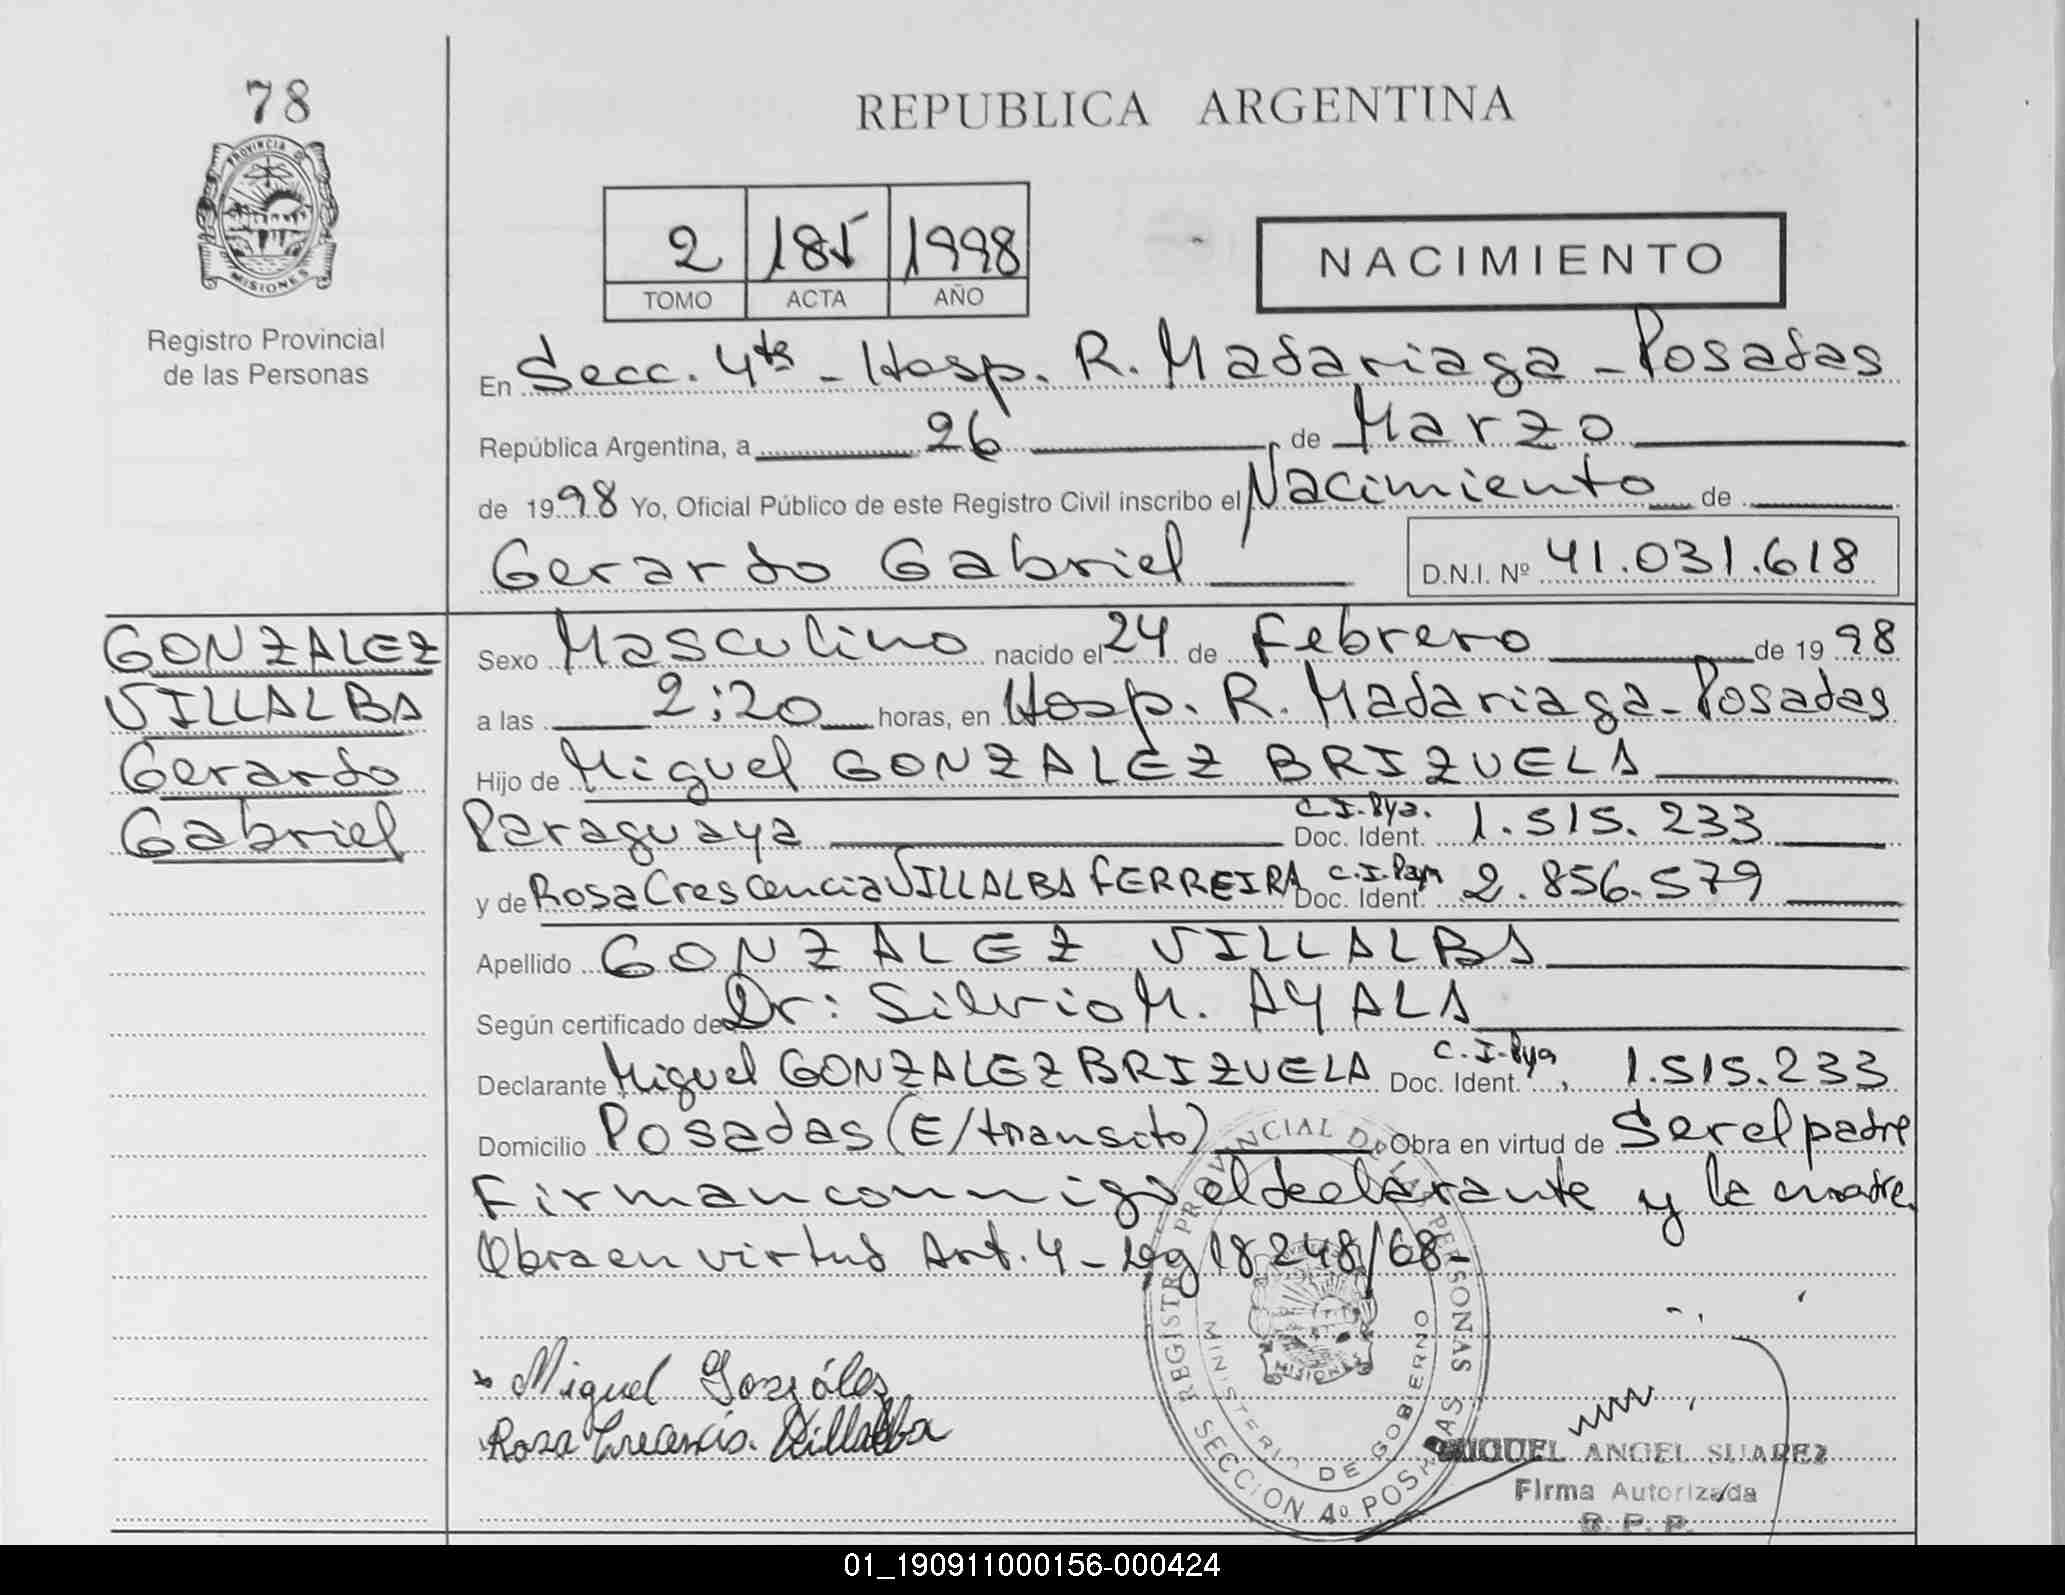 78
REPUBLICA ARGENTINA
PROVINCIA DE MISIONES
2 185 1998
TOMO ACTA AÑO
NACIMIENTO
Registro Provincial
de las Personas
En Secc. 4ta - Hosp. R. Madariaga - Posadas
República Argentina, a 26 de Marzo
de 1998 Yo, Oficial Público de este Registro Civil inscribo el Nacimiento de
Gerardo Gabriel D.N.I. Nº 41.031.618
GONZALEZ
VILLALBA
Gerardo
Gabriel
Sexo Masculino nacido el 24 de Febrero de 1998
a las 2:20 horas, en Hosp. R. Madariaga - Posadas
Hijo de Miguel GONZALEZ BRIZUELA
Paraguaya C.I.Pya. Doc. Ident. 1.515.233
y de Rosa Crescencia VILLALBA FERREIRA C.I. Doc. Ident. 2.856.579
Apellido GONZALEZ VILLALBA
Según certificado de Dr: Silvio M. AYALA
Declarante Miguel GONZALEZ BRIZUELA C.I.Pya Doc. Ident. 1.515.233
Domicilio Posadas (E/transito) Obra en virtud de Ser el padre
Firman conmigo el declarante y la madre.
Obra en virtud Art. 4 - Ley 18248/68-
Miguel Gonzáles
Rosa Villalba
REGISTRO PROVINCIAL DE LAS PERSONAS
MINISTERIO DE GOBIERNO
MISIONES
SECCION 4º POSADAS
MIGUEL ANGEL SUAREZ
Firma Autorizada
R. P. P.
01_190911000156-000424